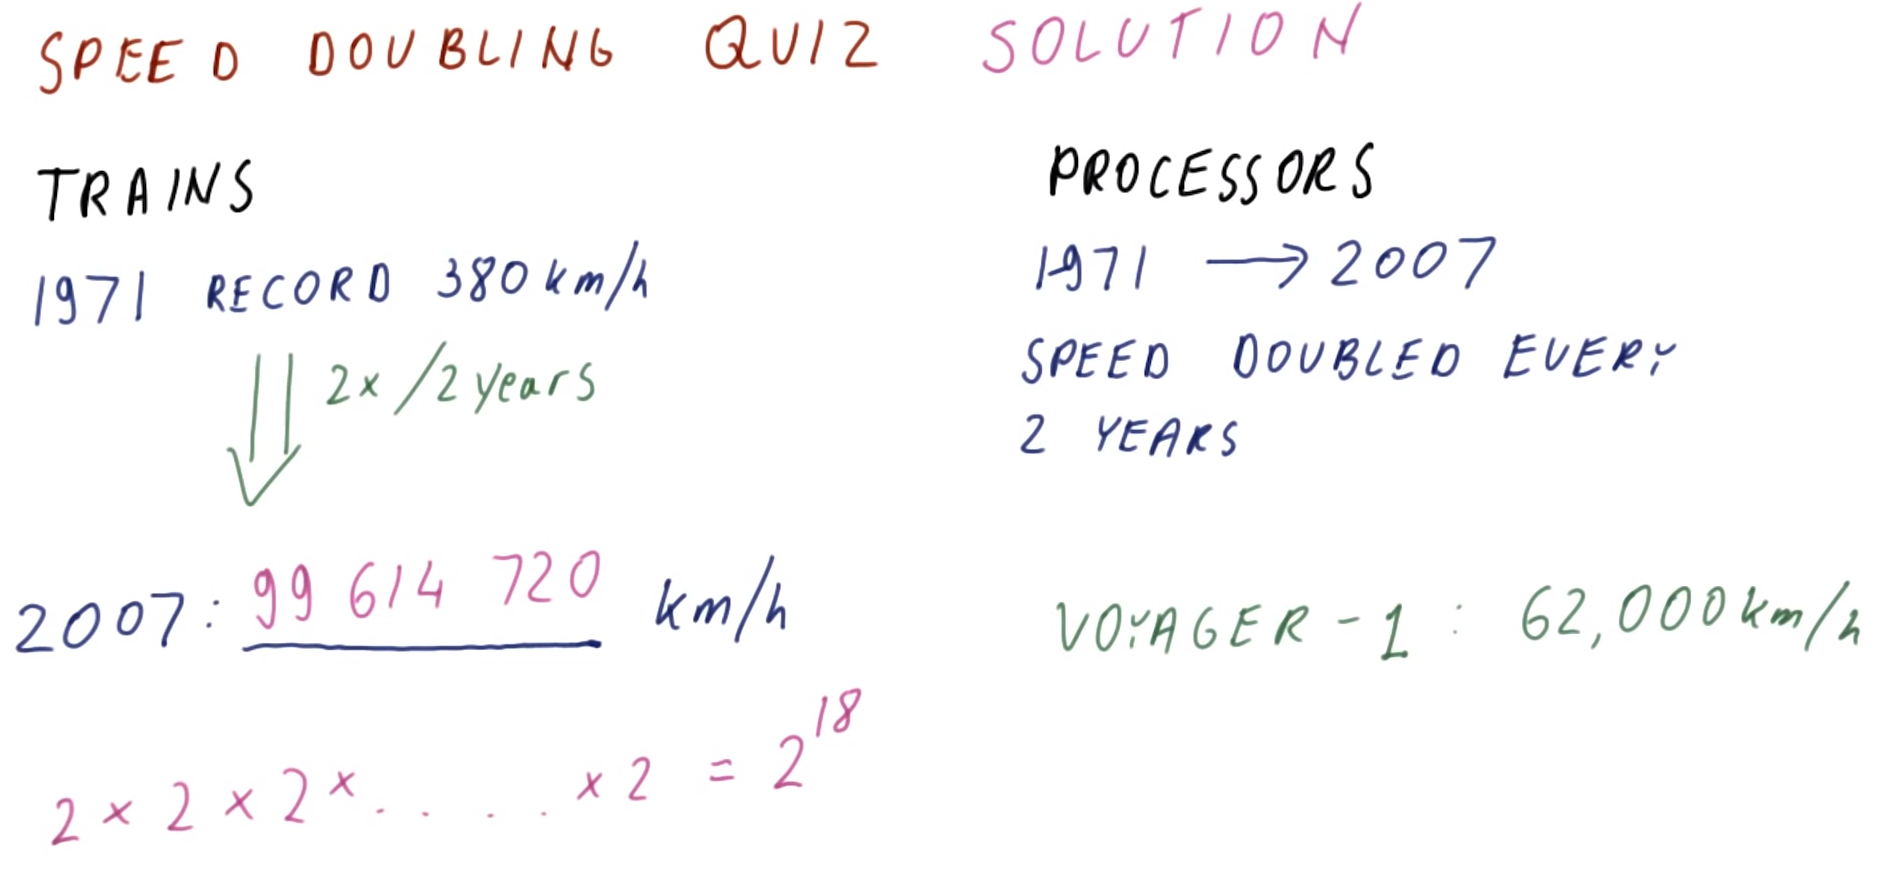 SPEED DOUBLING QUIZ SOLUTION
TRAINS
1971 RECORD 380 km/h
2x /2 years
2007: 99 614 720 km/h
2 × 2 × 2 × . . . . × 2 = 2^18
PROCESSORS
1971 → 2007
SPEED DOUBLED EVERY
2 YEARS
VOYAGER-1 : 62,000 km/h